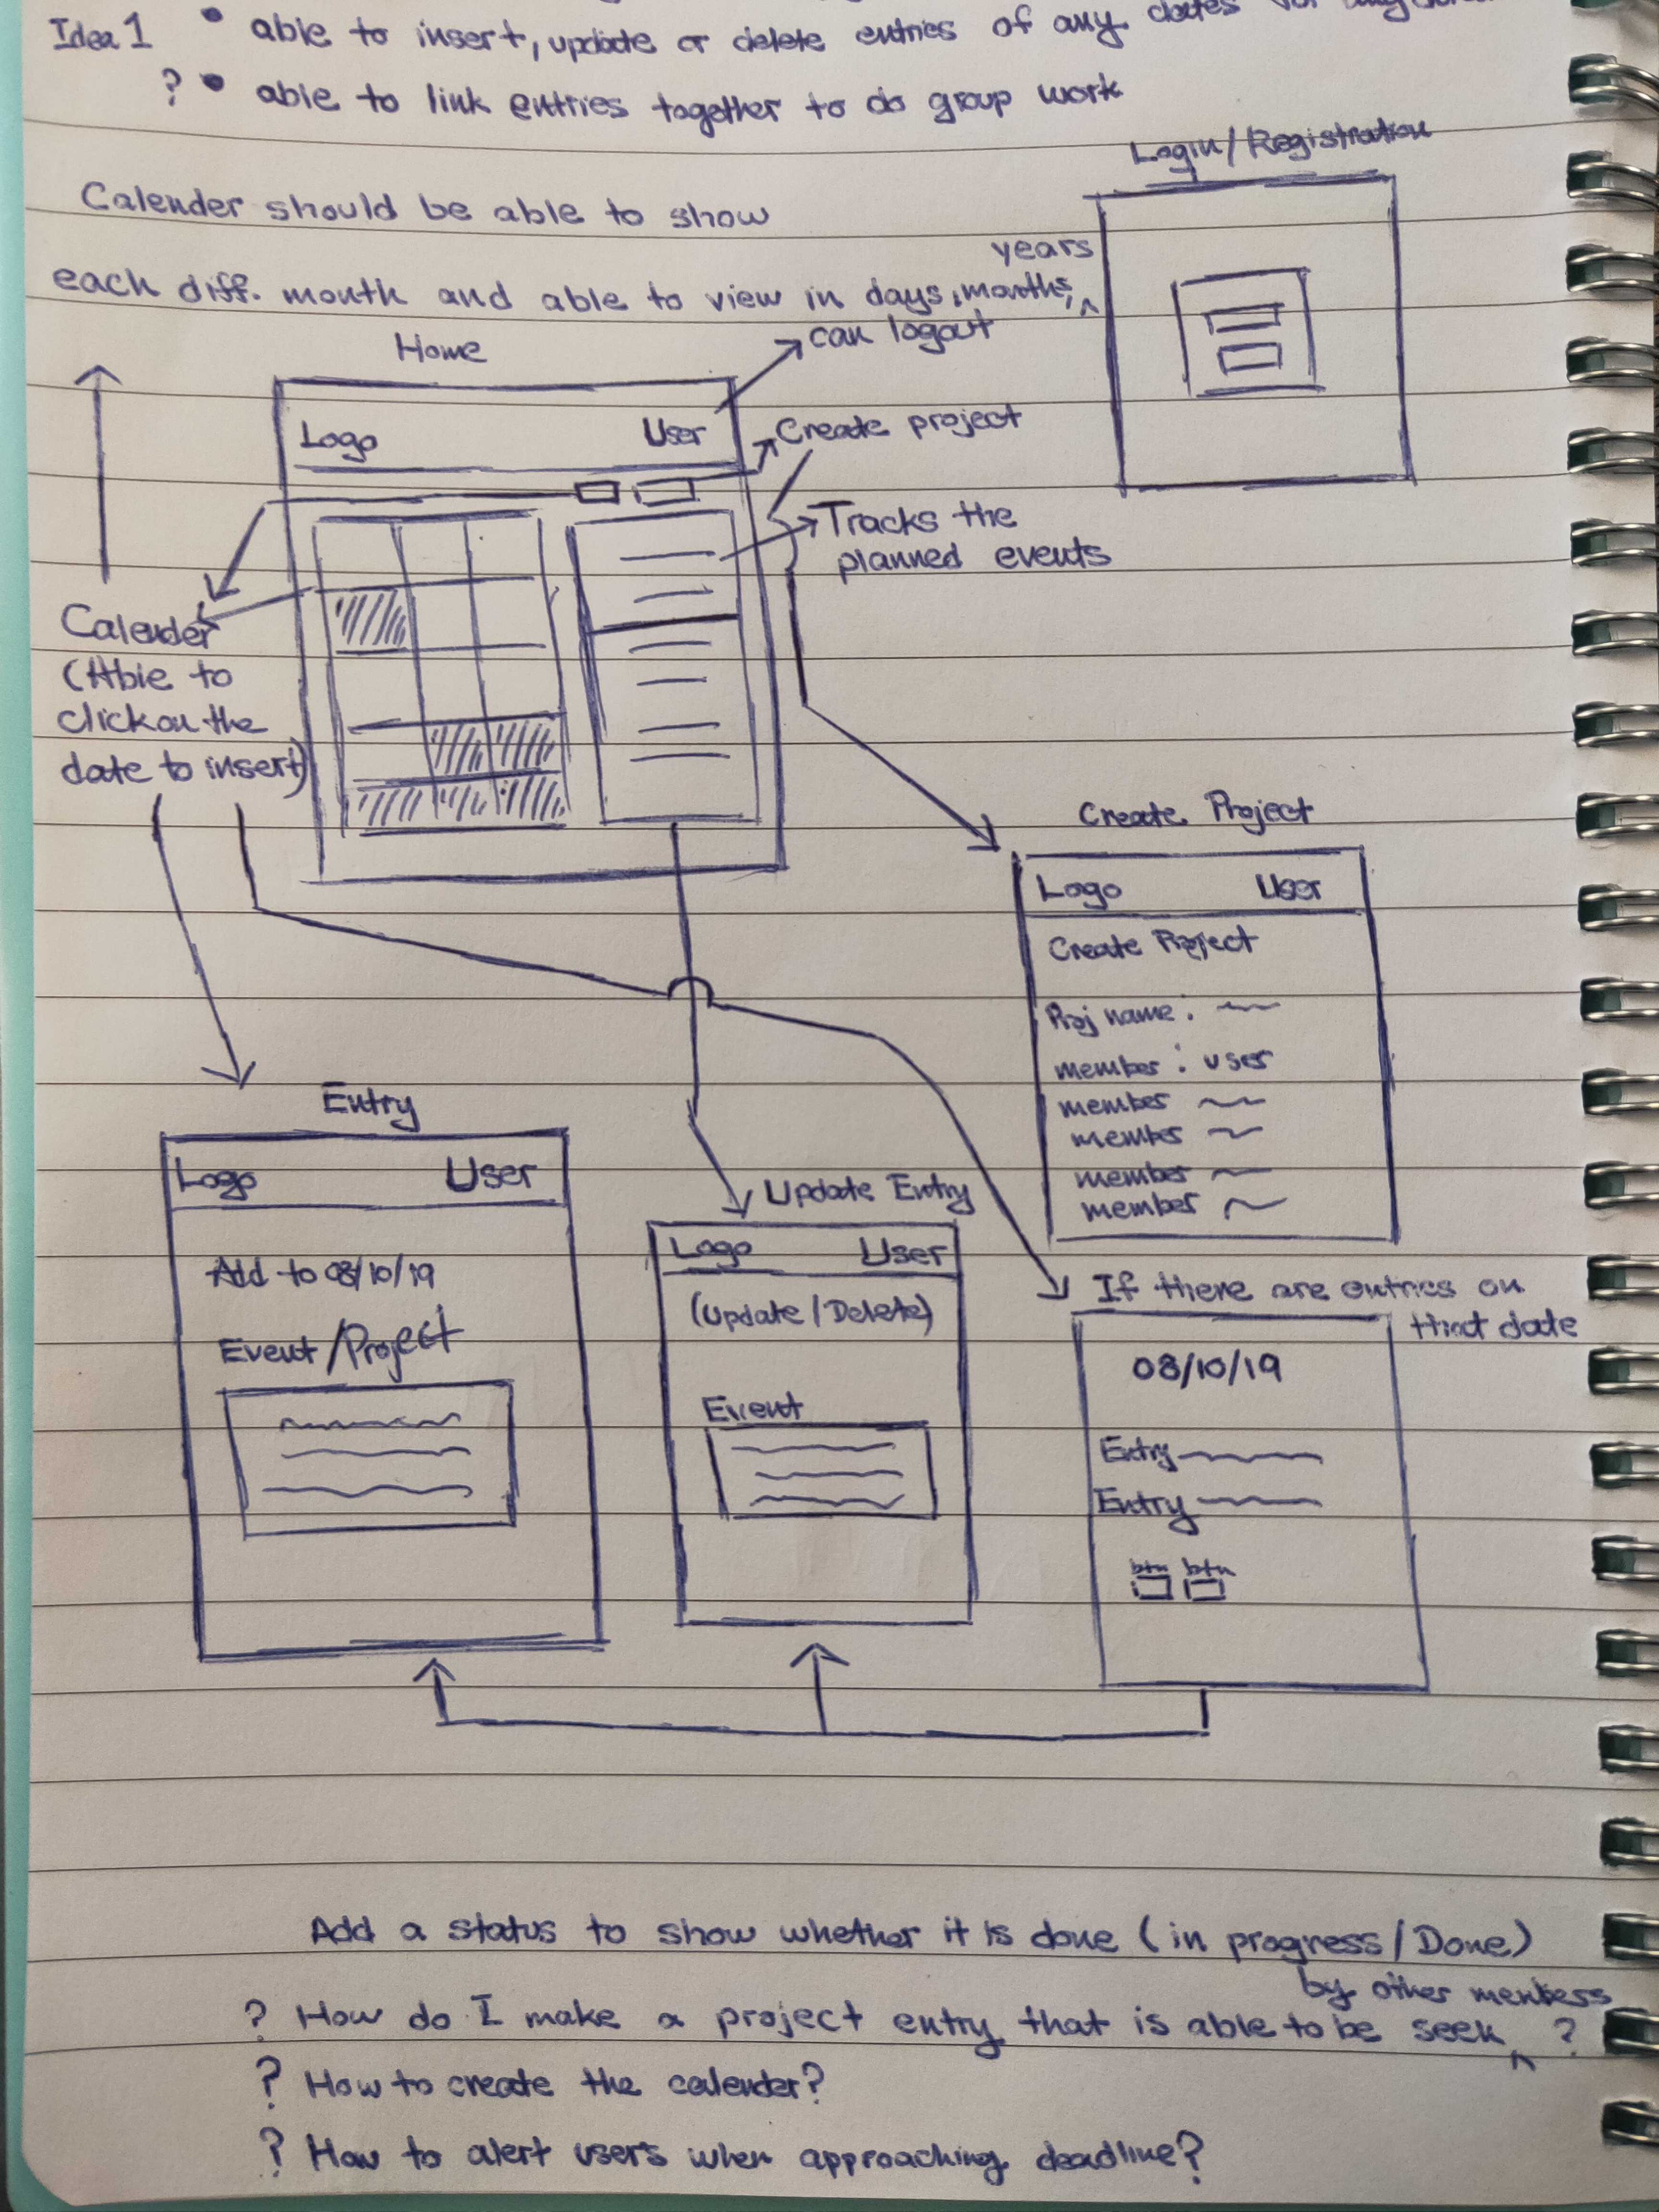 Idea 1 • able to insert, update or delete entries of any dates
? • able to link entries together to do group work
Login/Registration
Calender should be able to show
years
each diff. month and able to view in days, months, ^
can logout
Home
Logo User
Create project
Tracks the
planned events
Calender
(Able to
click on the
date to insert)
Create Project
Logo User
Create Project
Proj name : ~
member : user
member ~
member ~
member ~
member ~
Entry
Logo User
Add to 08/10/19
Event/Project
Update Entry
Logo User
(Update/Delete)
Event
If there are entries on
that date
08/10/19
Entry
Entry
btn btn
Add a status to show whether it is done (in progress/Done)
by other members
? How do I make a project entry that is able to be seek ^ ?
? How to create the calender?
? How to alert users when approaching deadline?